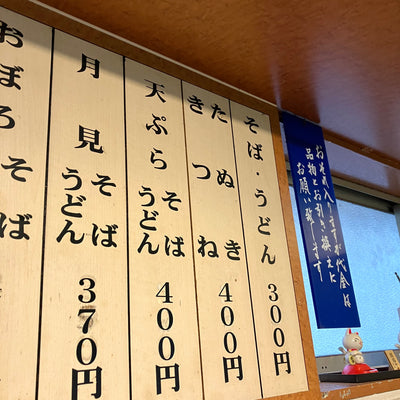 おそれ入りますが代金は
品物とお引き換えに
お願い致します
そば・うどん 300円
たぬき
きつね
400円
天ぷら
そば
うどん
400円
月見
そば
うどん
370円
おぼろ
そば